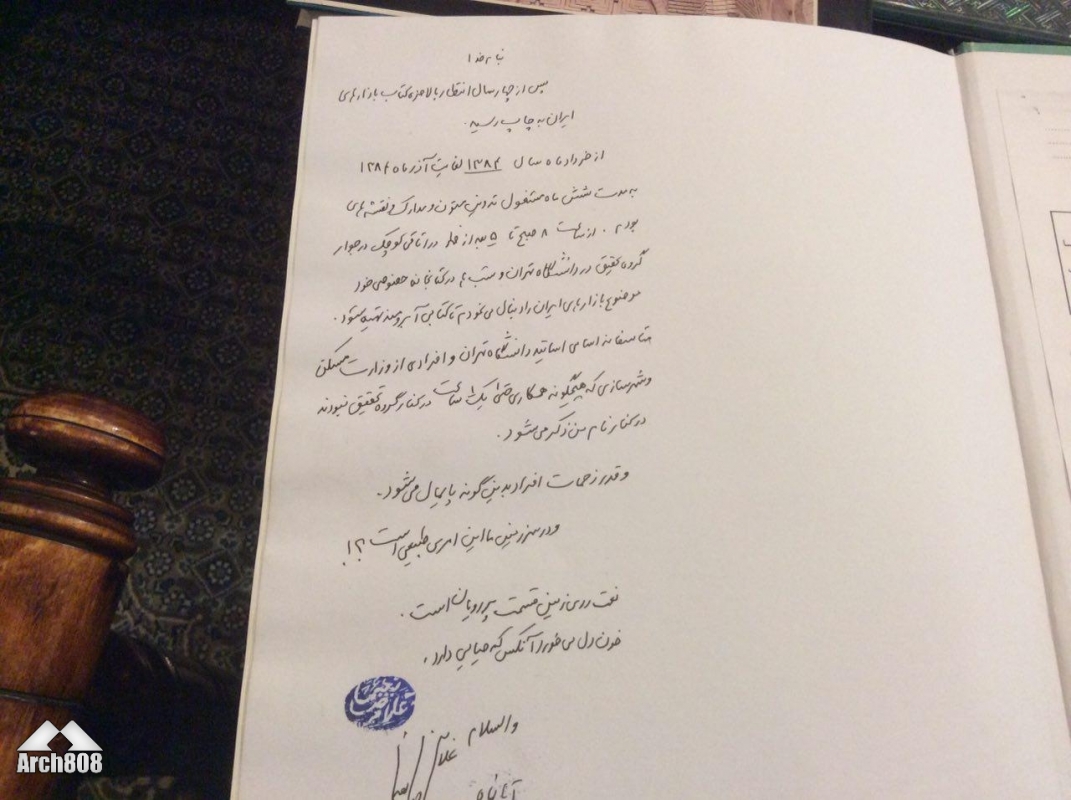 بنام خدا
پس از چهار سال انتظار بالاخره کتاب بازارهای
ایران به چاپ رسید.
از خرداد ماه سال ۱۳۸۴ لغایت آذر ماه ۱۳۸۴
به مدت شش ماه مشغول تدوین متون و مدارک و نقشه های
بودم. از ساعت ۸ صبح تا ۵ بعد از ظهر در اتاقی کوچک در جوار
گروه تحقیق در دانشگاه تهران و شب ها در کتابخانه خصوصی خود
موضوع بازارهای ایران را دنبال می نمودم تا کتابی آبرومند تهیه شود.
متاسفانه اسامی اساتید دانشگاه تهران و افرادی از وزارت مسکن
و شهرسازی که هیچگونه همکاری حتی یک ساعت در کنار گروه تحقیق نبودند
در کنار نام من ذکر می شود.
و قدر زحمات افراد بدین گونه پایمال می شود.
و در سرزمین ما این امری طبیعی است؟!
نعمت روی زمین قسمت پررویان است.
خون دل می خورد آنکس که حیایی دارد.
والسلام
Arch808